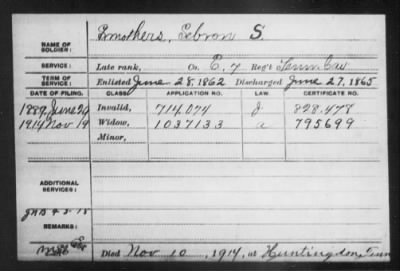 NAME OF SOLDIER: Prmothers, Sebron S.
SERVICE: Late rank, Co. E, 7 Reg't Tenn Cav
TERM OF SERVICE: Enlisted June 28, 1862 Discharged June 27, 1865
DATE OF FILING. CLASS. APPLICATION NO. LAW. CERTIFICATE NO.
1889, June 20 Invalid, 714.074 J 828.478
1914 Nov 19 Widow, 1037133 a 795699
Minor,
ADDITIONAL SERVICES:
REMARKS:
Died Nov 10, 1914, at Huntingdon, Tenn